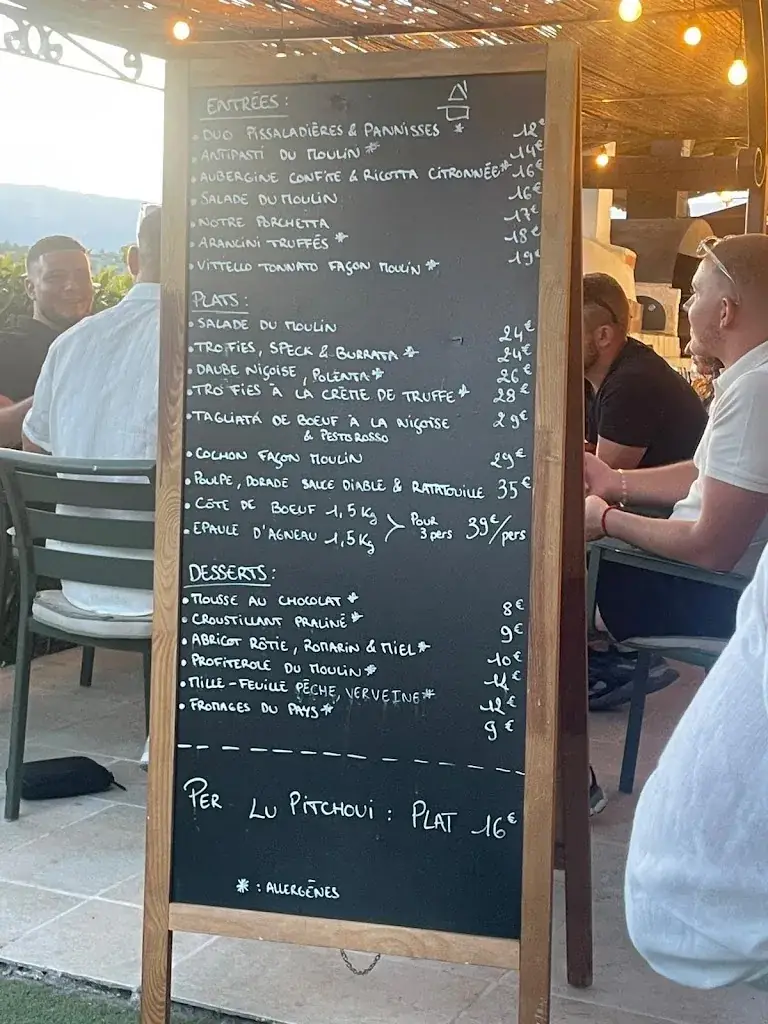 ENTRÉES :
• DUO PISSALADIÈRES & PANNISSES * 12€
• ANTIPASTI DU MOULIN * 14€
• AUBERGINE CONFITE & RICOTTA CITRONNÉE * 16€
• SALADE DU MOULIN 16€
• NOTRE PORCHETTA 17€
• ARANCINI TRUFFÉS * 18€
• VITTELLO TONNATO FAÇON MOULIN * 19€
PLATS :
• SALADE DU MOULIN 24€
• TROFIES, SPECK & BURRATA * 24€
• DAUBE NIÇOISE, POLENTA * 26€
• TROFIES À LA CRÈME DE TRUFFE * 28€
• TAGLIATA DE BOEUF À LA NIÇOISE 29€
& PESTO ROSSO
• COCHON FAÇON MOULIN 29€
• POULPE, DORADE SAUCE DIABLE & RATATOUILLE 35€
• CÔTE DE BOEUF 1,5Kg
• EPAULE D'AGNEAU 1,5Kg > Pour 3 pers 39€/pers
DESSERTS :
• MOUSSE AU CHOCOLAT * 8€
• CROUSTILLANT PRALINÉ * 9€
• ABRICOT RÔTIE, ROMARIN & MIEL * 10€
• PROFITEROLE DU MOULIN * 11€
• MILLE-FEUILLE PÊCHE, VERVEINE * 12€
• FROMAGES DU PAYS * 9€
PER LU PITCHOUI : PLAT 16€
* : ALLERGÈNES